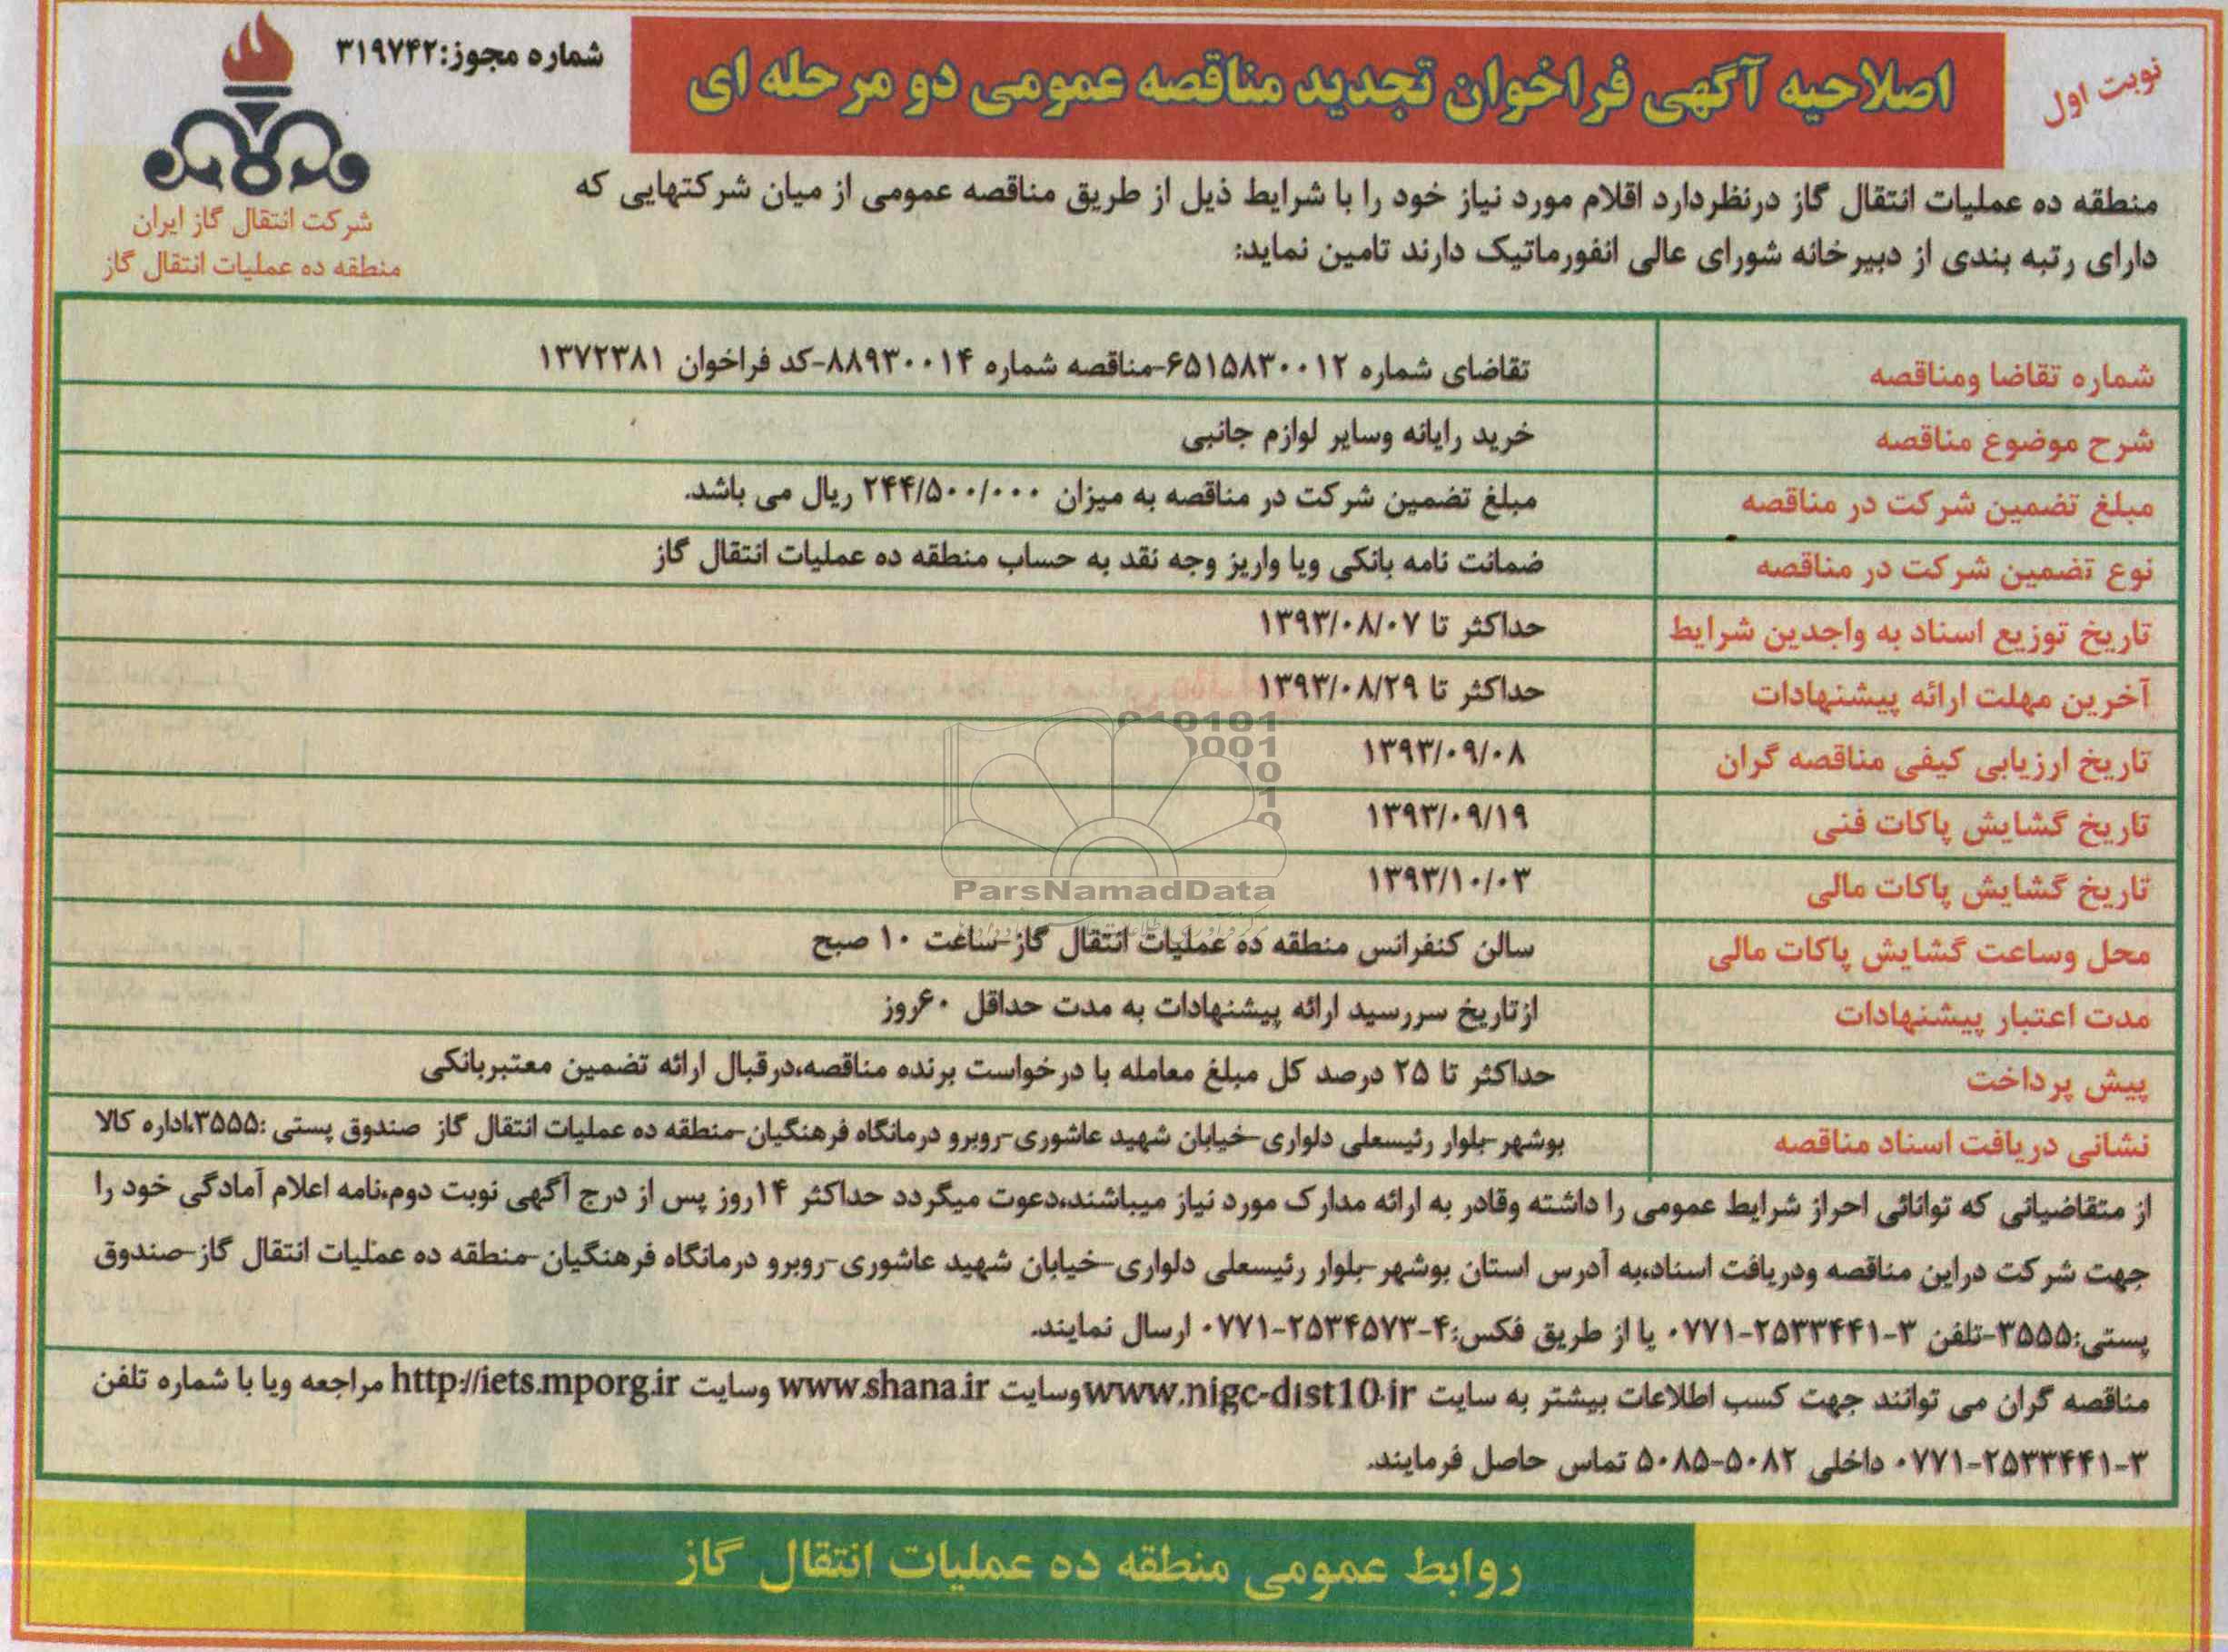 نوبت اول
اصلاحیه آگهی فراخوان تجدید مناقصه عمومی دو مرحله ای
شماره مجوز:۳۱۹۷۴۲
شرکت انتقال گاز ایران
منطقه ده عملیات انتقال گاز
منطقه ده عملیات انتقال گاز درنظردارد اقلام مورد نیاز خود را با شرایط ذیل از طریق مناقصه عمومی از میان شرکتهایی که
دارای رتبه بندی از دبیرخانه شورای عالی انفورماتیک دارند تامین نماید:
شماره تقاضا ومناقصه تقاضای شماره ۶۵۱۵۸۳۰۰۱۲-مناقصه شماره ۸۸۹۳۰۰۱۴-کد فراخوان ۱۳۷۲۳۸۱
شرح موضوع مناقصه خرید رایانه وسایر لوازم جانبی
مبلغ تضمین شرکت در مناقصه مبلغ تضمین شرکت در مناقصه به میزان ۲۴۴/۵۰۰/۰۰۰ ریال می باشد.
نوع تضمین شرکت در مناقصه ضمانت نامه بانکی ویا واریز وجه نقد به حساب منطقه ده عملیات انتقال گاز
تاریخ توزیع اسناد به واجدین شرایط حداکثر تا ۱۳۹۳/۰۸/۰۷
آخرین مهلت ارائه پیشنهادات حداکثر تا ۱۳۹۳/۰۸/۲۹
تاریخ ارزیابی کیفی مناقصه گران ۱۳۹۳/۰۹/۰۸
تاریخ گشایش پاکات فنی ۱۳۹۳/۰۹/۱۹
تاریخ گشایش پاکات مالی ۱۳۹۳/۱۰/۰۳
محل وساعت گشایش پاکات مالی سالن کنفرانس منطقه ده عملیات انتقال گاز-ساعت ۱۰ صبح
مدت اعتبار پیشنهادات ازتاریخ سررسید ارائه پیشنهادات به مدت حداقل ۶۰روز
پیش پرداخت حداکثر تا ۲۵ درصد کل مبلغ معامله با درخواست برنده مناقصه،درقبال ارائه تضمین معتبربانکی
نشانی دریافت اسناد مناقصه بوشهر-بلوار رئیسعلی دلواری-خیابان شهید عاشوری-روبرو درمانگاه فرهنگیان-منطقه ده عملیات انتقال گاز صندوق پستی :۳۵۵۵،اداره کالا
از متقاضیانی که توانائی احراز شرایط عمومی را داشته وقادر به ارائه مدارک مورد نیاز میباشند،دعوت میگردد حداکثر ۱۴روز پس از درج آگهی نوبت دوم،نامه اعلام آمادگی خود را
جهت شرکت دراین مناقصه ودریافت اسناد،به آدرس استان بوشهر-بلوار رئیسعلی دلواری-خیابان شهید عاشوری-روبرو درمانگاه فرهنگیان-منطقه ده عملیات انتقال گاز-صندوق
پستی:۳۵۵۵-تلفن ۳-۲۵۳۳۴۴۱-۰۷۷۱ یا از طریق فکس:۴-۲۵۳۴۵۷۳-۰۷۷۱ ارسال نمایند.
مناقصه گران می توانند جهت کسب اطلاعات بیشتر به سایت www.nigc-dist10.ir وسایت www.shana.ir وسایت http://iets.mporg.ir مراجعه ویا با شماره تلفن
۳-۲۵۳۳۴۴۱-۰۷۷۱ داخلی ۵۰۸۲-۵۰۸۵ تماس حاصل فرمایند.
روابط عمومی منطقه ده عملیات انتقال گاز
ParsNamadData